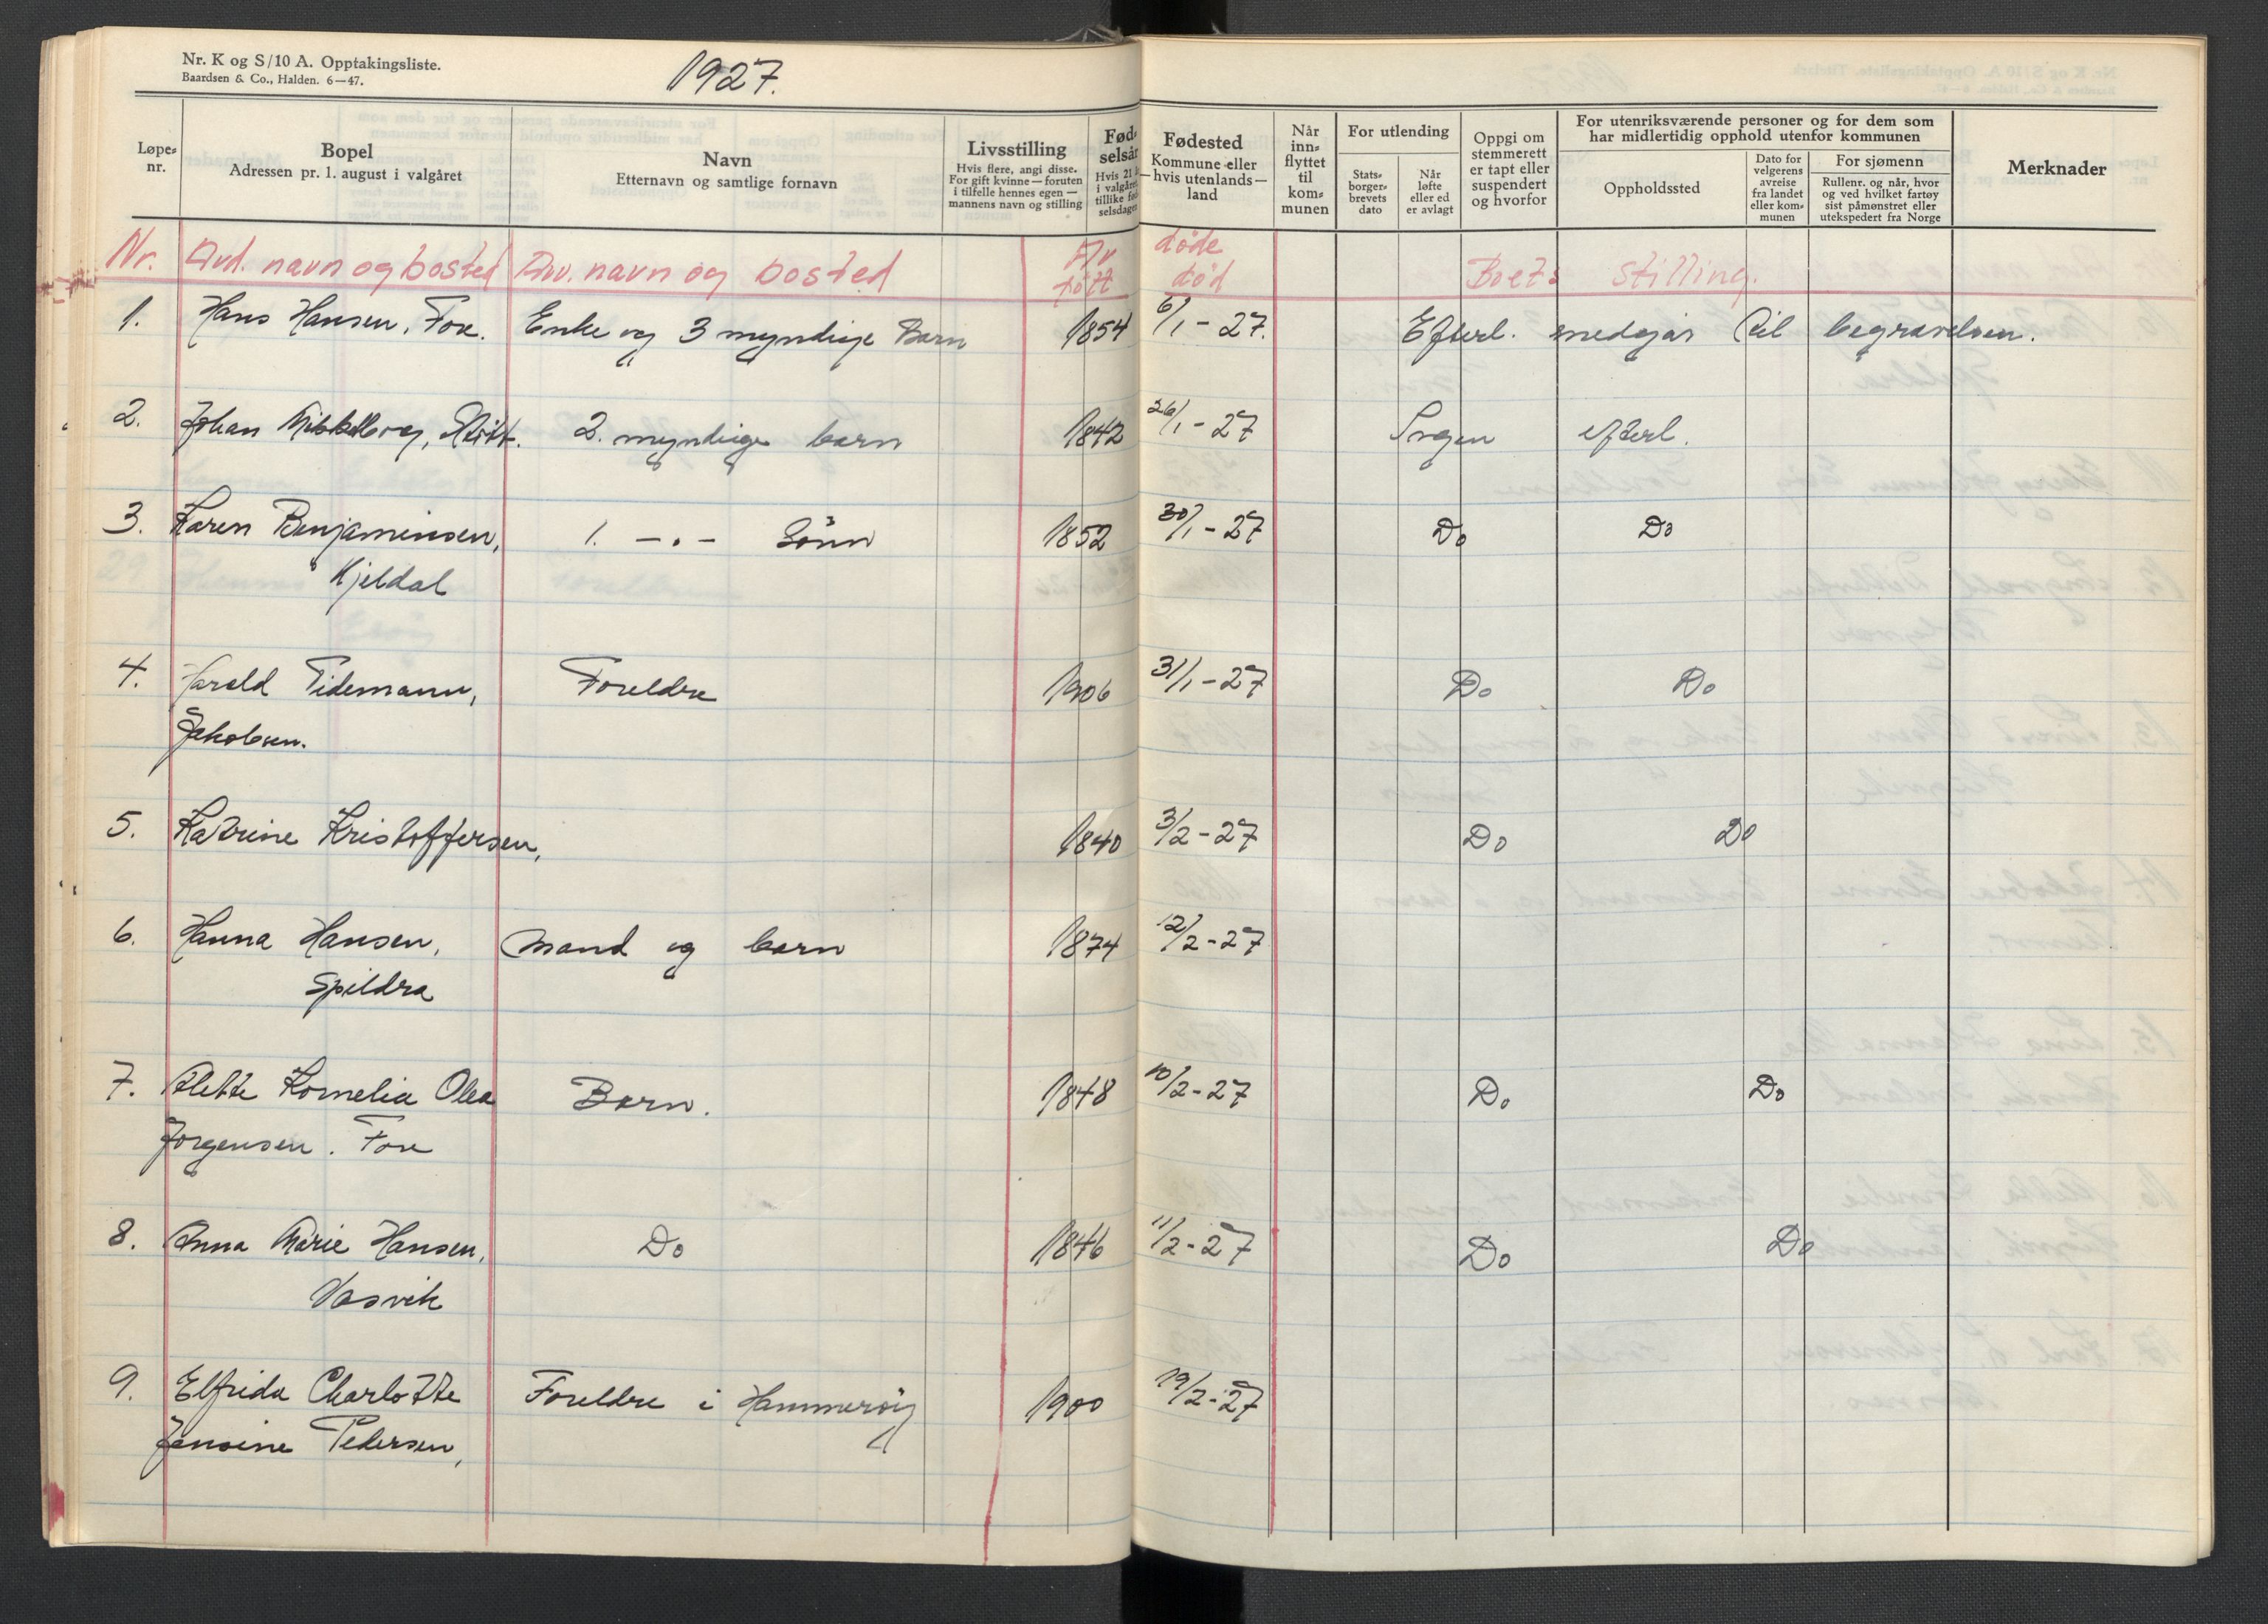 Nr. K og S/10 A. Opptakingsliste.
Baardsen & Co., Halden. 6—47.
1927.
Løpe-
nr.
Bopel
Adressen pr. 1. august i valgåret
Navn
Etternavn og samtlige fornavn
Livsstilling
Hvis flere, angi disse.
For gift kvinne — foruten
i tilfelle hennes egen —
mannens navn og stilling
Fød-
selsår
Hvis 21 å
i valgåret
tillike fød
selsdagen
Fødested
Kommune eller
— hvis utenlands —
land
Når
inn-
flyttet
til
kom-
munen
For utlending
Stats-
borger-
brevets
dato
Når
løfte
eller ed
er avlagt
Oppgi om
stemmerett
er tapt eller
suspendert
og hvorfor
For utenriksværende personer og for dem som
har midlertidig opphold utenfor kommunen
Oppholdssted
Dato for
velgerens
avreise
fra landet
eller kom-
munen
For sjømenn
Rullenr. og når, hvor
og ved hvilket fartøy
sist påmønstret eller
utekspedert fra Norge
Merknader
Nr. Avd. navn og bosted Arv. navn og bosted Av døde
født død Boets stilling.
1. Hans Hansen, Fore. Enke og 3 myndige Barn 1854 6/1 - 27. Efterl. medgår til begravelsen.
2. Johan Mikkelborg, 2. myndige barn 1842 26/1 - 27 Ingen efterl.
3. Karen Benjaminsen, 1. -.- Sønn 1852 30/1 - 27 Do Do
Kjeldal
4. Harald Tidemann, Foreldre 1906 31/1 - 27 Do Do
Jakobsen.
5. Katrine Kristoffersen, 1840 3/2 - 27 Do Do
6. Hanna Hansen, Mand og barn 1874 12/2 - 27
Spildra
7. Alette Kornelia Olea Barn. 1848 10/2 - 27 Do Do
Jørgensen. Fore
8. Anna Marie Hansen, Do 1846 11/2 - 27 Do Do
Vasvik
9. Elfrida Charlotte Foreldre i Hammerøy 1900 19/2 - 27
Jensine Pedersen,